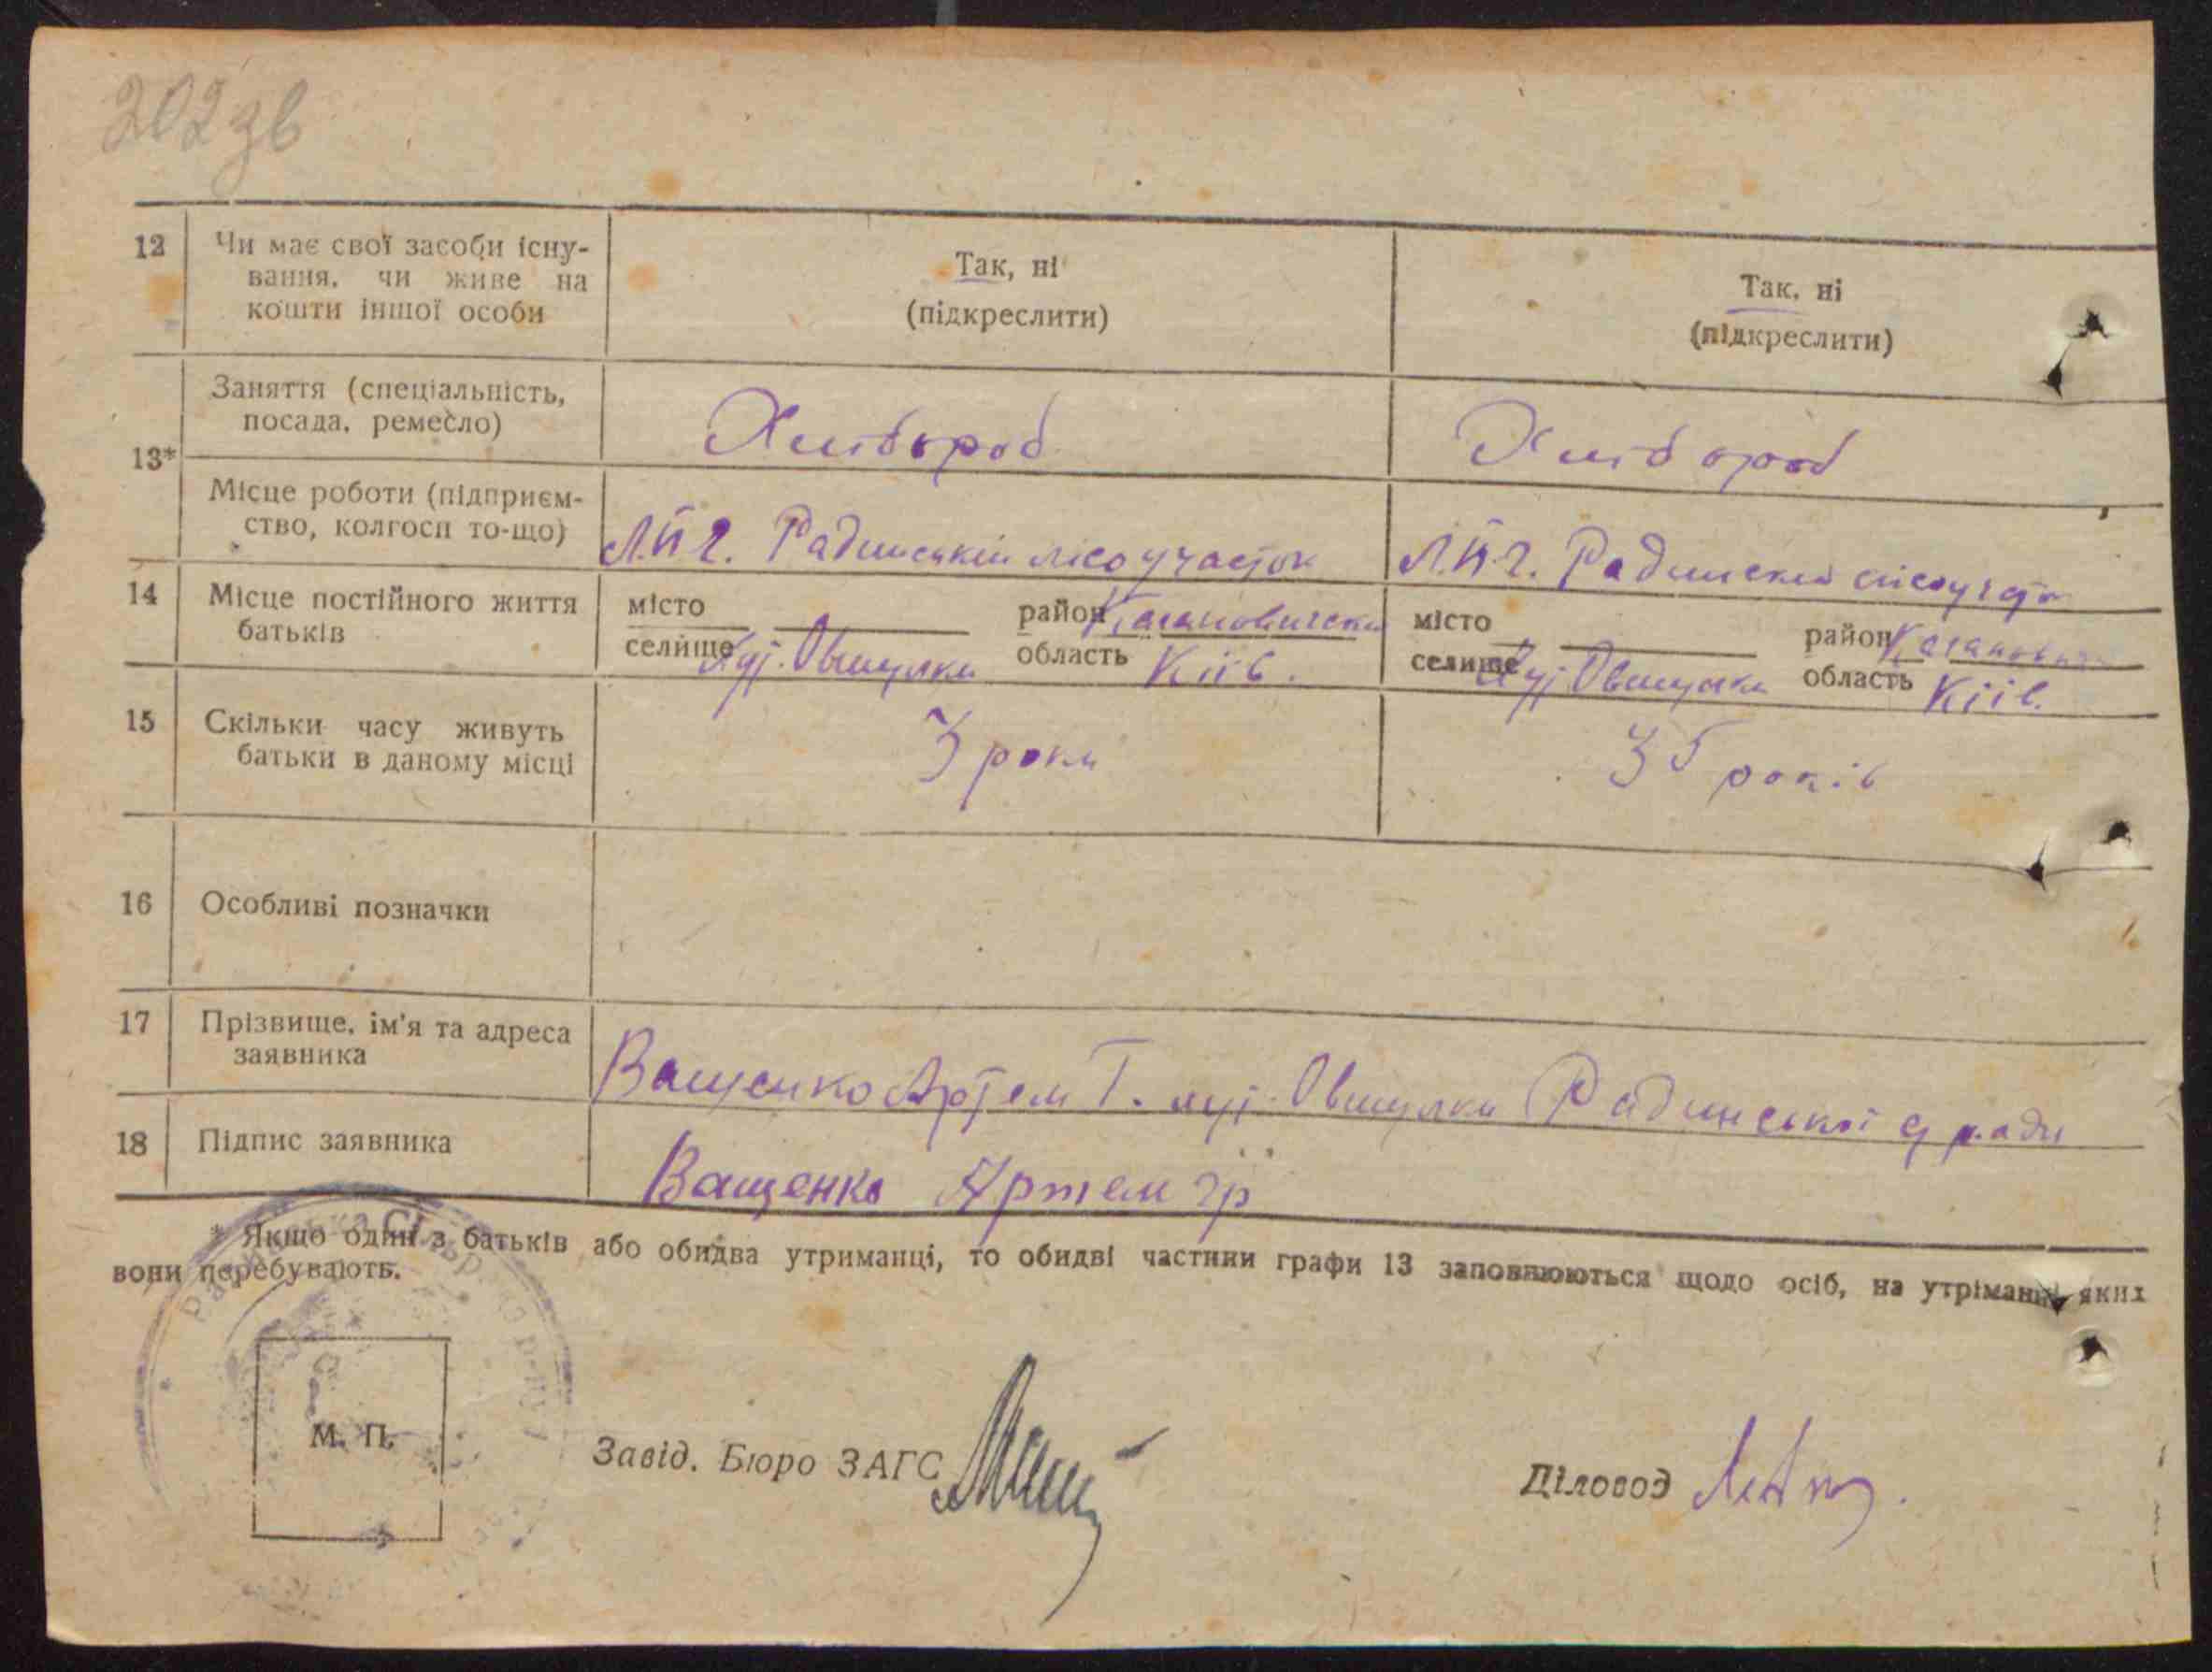 202зв
12 Чи має свої засоби існу-
вання, чи живе на
кошти іншої особи
Так, ні
(підкреслити)
Так, ні
(підкреслити)
13*
Заняття (спеціальність,
посада, ремесло)
Хлібороб
Хлібороб
Місце роботи (підприєм-
ство, колгосп то-що)
Радинський лісоучасток
Радинский
14 Місце постійного життя
батьків
місто
селище хут. Овшулки
район Кагановически
область Київ.
місто
селище хут Овшулки
район
область Київ.
15 Скільки часу живуть
батьки в даному місці
3 роки
35 років
16 Особливі позначки
17 Прізвище, ім'я та адреса
заявника
Ващенко Артем Г. хут. Овшулки Радинської с ради
18 Підпис заявника
Ващенко Артем Гр
* Якщо один з батьків або обидва утриманці, то обидві частини графи 13 заповнюються щодо осіб, на утріманні яких
вони перебувають.
М. П.
Завід. Бюро ЗАГС
Діловод